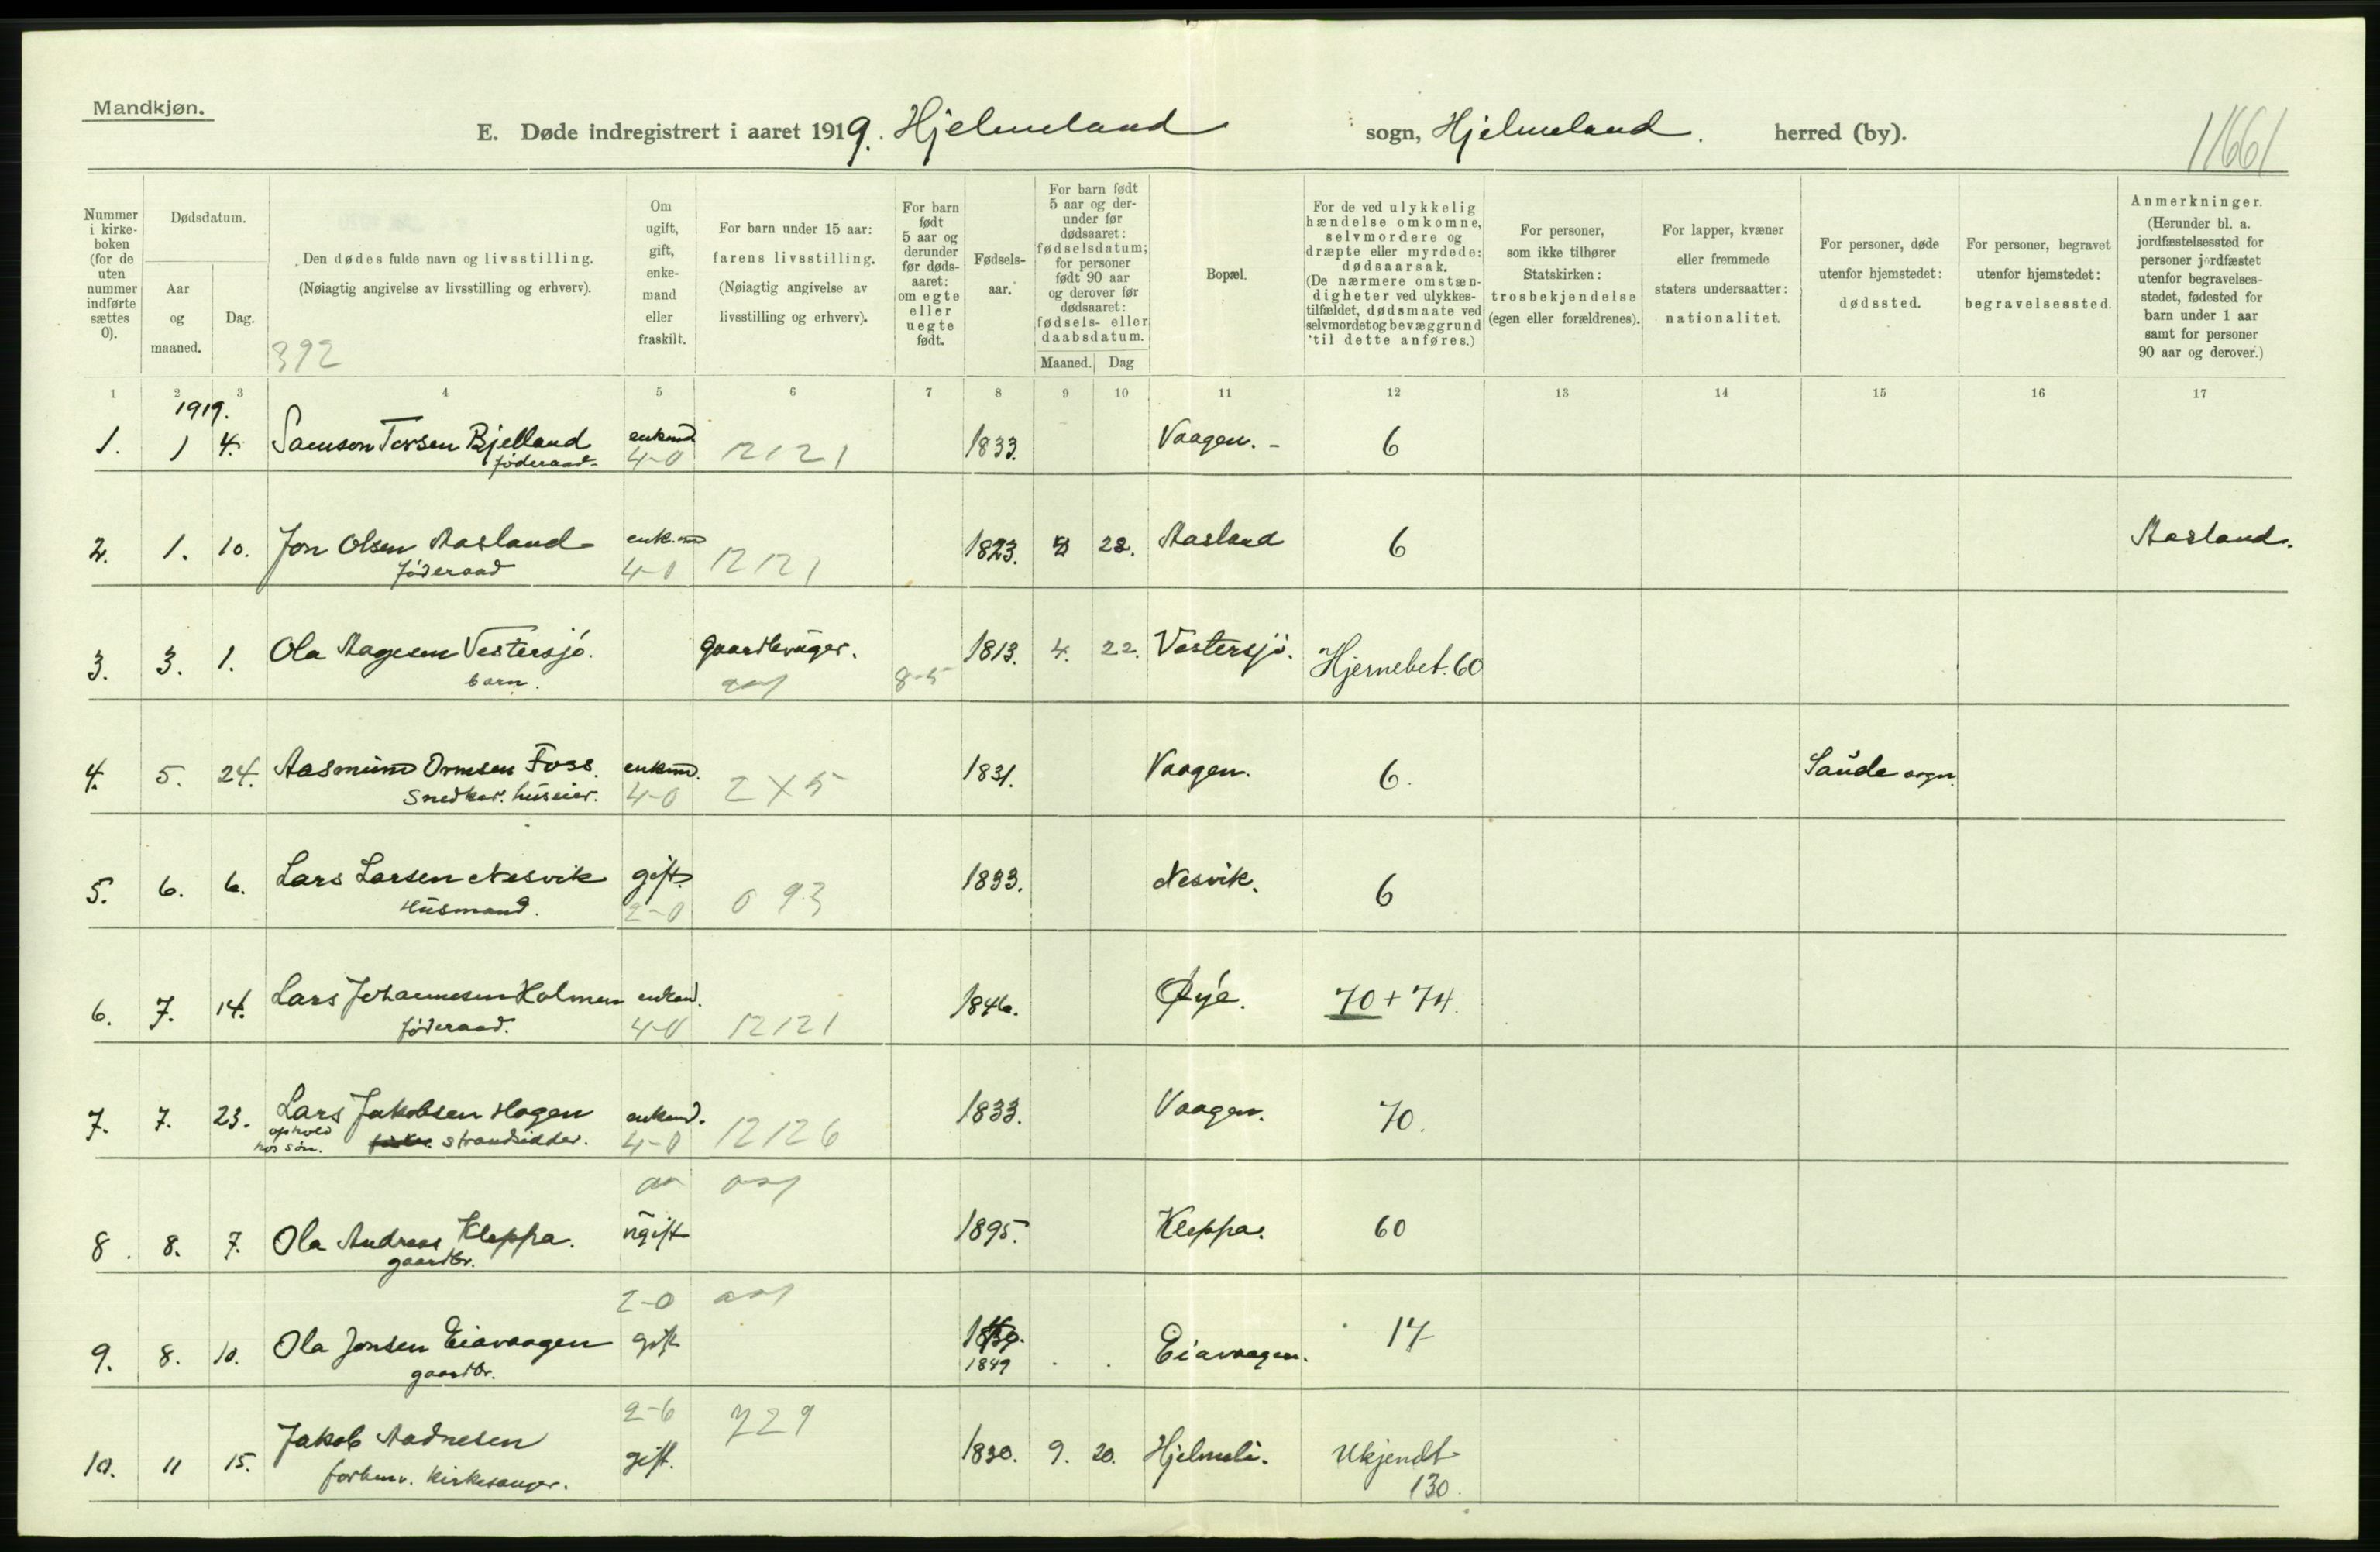 Mandkjøn.
E. Døde indregistrert i aaret 1919. Hjelmeland sogn, Hjelmeland. herred (by).
11661
Nummer i kirke-boken (for de uten nummer indførte sættes 0).
Dødsdatum.
Aar og maaned.
Dag.
Den dødes fulde navn og livsstilling.
(Nøiagtig angivelse av livsstilling og erhverv).
392
Om ugift, gift, enke-mand eller fraskilt.
For barn under 15 aar: farens livsstilling.
(Nøiagtig angivelse av livsstilling og erhverv).
For barn født 5 aar og derunder før døds-aaret: om egte eller uegte født.
Fødsels-aar.
For barn født 5 aar og der-under før dødsaaret: fødselsdatum; for personer født 90 aar og derover før dødsaaret: fødsels- eller daabsdatum.
Maaned. Dag
Bopæl.
For de ved ulykkelig hændelse omkomne, selvmordere og dræpte eller myrdede: dødsaarsak.
(De nærmere omstæn-digheter ved ulykkes-tilfældet, dødsmaate ved selvmordet og bevæggrund til dette anføres.)
For personer, som ikke tilhører Statskirken: trosbekjendelse (egen eller forældrenes).
For lapper, kvæner eller fremmede staters undersaatter: nationalitet.
For personer, døde utenfor hjemstedet: dødssted.
For personer, begravet utenfor hjemstedet: begravelsessted.
Anmerkninger.
(Herunder bl. a. jordfæstelsessted for personer jordfæstet utenfor begravelses-stedet, fødested for barn under 1 aar samt for personer 90 aar og derover.)
1 2 3 4 5 6 7 8 9 10 11 12 13 14 15 16 17
1919.
1. 1 4. Samson Torsen Bjelland enkemd 1833. Vaagen. - 6
føderaad- 4-0 12121
2. 1. 10. Jon Olsen Aasland enk.md 1823. 28. Aasland 6 Aasland.
føderaad 4-0 12121
3. 3. 1. Ola Aagesen Vestersjø. gaardbruger. 1813. 4. 22. Vestersjø. Hjernebet. 60
barn. 8-5
4. 5. 24. Aasmund Ormsen Foss. enkemd. 1831. Vaagen. 6. Saude sogn.
Snedker. huseier. 4-0 2X5
5. 6. 6. Lars Larsen Nesvik gift. 1833. Nesvik. 6
Husmand. 2-0 093
6. 7. 14. Lars Johannesen Holmen enkemd. 1846. Øye. 70+74.
føderaad. 4-0 12121
7. 7. 23. Lars Jakobsen Hagen enkemd. 1833. Vaagen. 70.
ophold hos søn. strandsidder. 4-0 12126
8. 8. 7. Ola Andreas Kleppa. ugift 1895. Kleppa. 60
gaardbr.
2-0
9. 8. 10. Ola Jonsen Eiavaagen gift Eiavaagen. 17
gaardbr. 1849
2-6 729
10. 11 15. Jakob Aadnesen gift. 1830. 9. 20. Hjelmeli. Ukjendt
forhenv. kirkesanger. 130.